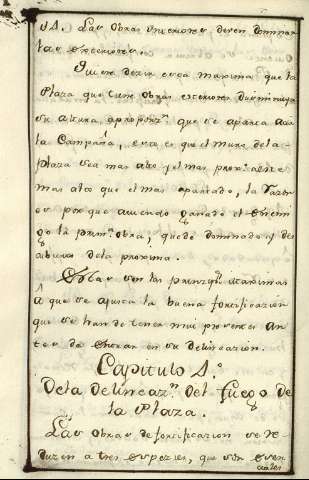 14. Las Obras interiores deven dominar
las exteriores.
Quiere decir essa maxima que la
Plaza que tiene Obras exteriores disminuya
su altura, a proporzn. que se aparta a la
la Campaña, esto es que el muro de la
Plaza sea mas alto y el mas proxo. a este
mas alto que el mas apartado, la razon
es por que aviendo ganado el enemi
go la primra. obra, quede dominado y des
cubierto de la proxima.
Estas son las prinzips. maximas
a que se ajusta la buena fortificazion
que se han de tener mui presentes an
tes de entrar en su delineazion.
Capitulo 4.o
De la delineazn. del fuego de
la Plaza.
Las Obras de fortificazion se re
duzen a tres espezies, que son esen
ciales